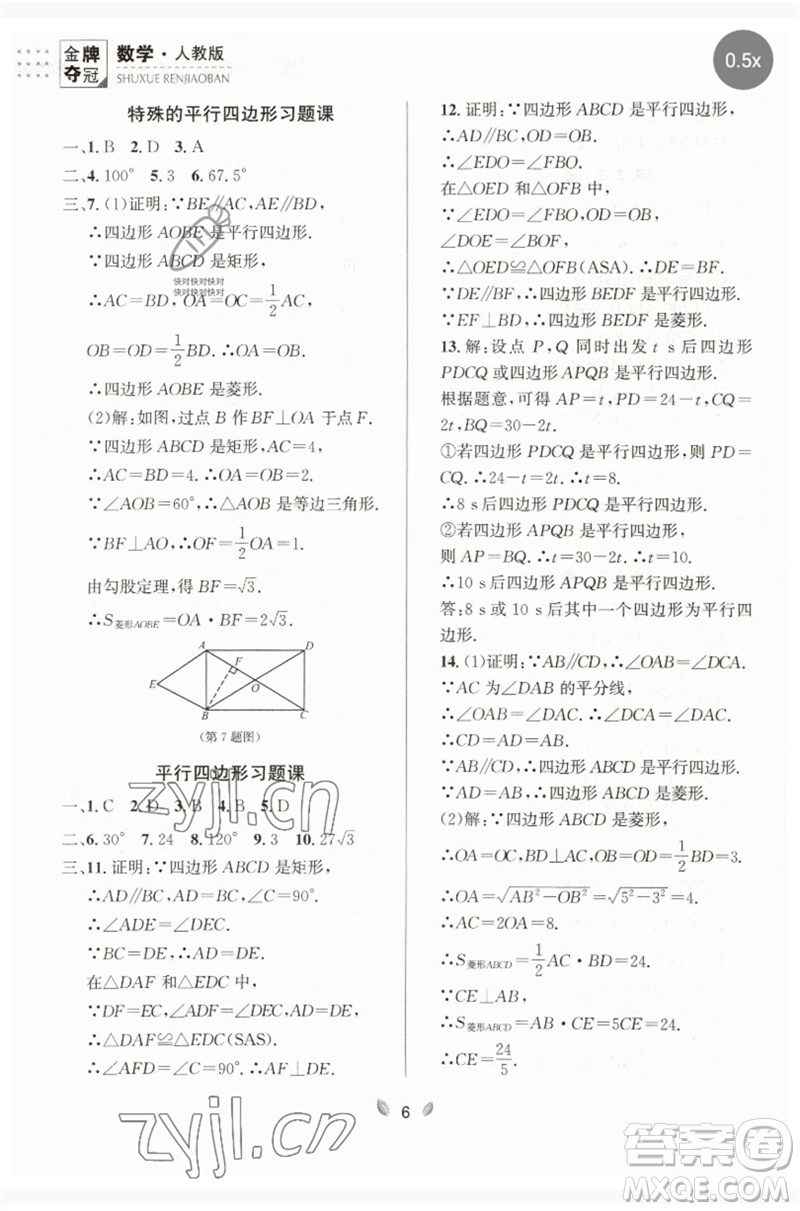 金牌
夺冠
数学·人教版
SHUXUE RENJIAOBAN
0.5x
特殊的平行四边形习题课
一、1. B  2. D  3. A
二、4. 100°  5. 3  6. 67.5°
三、7. (1)证明：∵BE∥AC，AE∥BD，
∴四边形 AOBE 是平行四边形.
∵四边形 ABCD 是矩形，
∴AC=BD，OA=OC=1/2AC，
快对快对快对
快对快对快对
OB=OD=1/2BD. ∴OA=OB.
∴四边形 AOBE 是菱形.
(2)解：如图，过点 B 作BF⊥OA 于点 F.
∵四边形 ABCD 是矩形，AC=4，
∴AC=BD=4. ∴OA=OB=2.
∵∠AOB=60°，∴△AOB 是等边三角形.
∵BF⊥AO，∴OF=1/2OA=1.
由勾股定理，得 BF=√3.
∴S菱形AOBE=OA·BF=2√3.
A
D
F
E
O
B
C
(第 7 题图)
平行四边形习题课
一、1. C  2. D  3. B  4. B  5. D
二、6. 30°  7. 24  8. 120°  9. 3  10. 27√3
三、11. 证明：∵四边形 ABCD 是矩形，
∴AD∥BC，AD=BC，∠C=90°.
∴∠ADE=∠DEC.
∵BC=DE，∴AD=DE.
在△DAF 和△EDC 中，
∵DF=EC，∠ADE=∠DEC，AD=DE，
∴△DAF≌△EDC(SAS).
∴∠AFD=∠C=90°. ∴AF⊥DE.
12. 证明：∵四边形 ABCD 是平行四边形，
∴AD∥BC，OB=OD.
∴∠EDO=∠FBO.
在△OED 和△OFB 中，
∵∠EDO=∠FBO，OD=OB，
∠DOE=∠BOF，
∴△OED≌△OFB(ASA). ∴DE=BF.
∵DE∥BF，∴四边形 BEDF 是平行四边形.
∵EF⊥BD，∴四边形 BEDF 是菱形.
13. 解：设点 P，Q 同时出发 t s后四边形
PDCQ 或四边形 APQB 是平行四边形.
根据题意，可得 AP=t，PD=24-t，CQ=
2t，BQ=30-2t.
①若四边形 PDCQ 是平行四边形，则 PD=
CQ. ∴24-t=2t. ∴t=8.
∴8 s后四边形 PDCQ 是平行四边形.
②若四边形 APQB 是平行四边形，
则 AP=BQ. ∴t=30-2t. ∴t=10.
∴10 s后四边形 APQB 是平行四边形.
答：8 s或 10 s后其中一个四边形为平行四
边形.
14. (1)证明：∵AB∥CD，∴∠OAB=∠DCA.
∵AC 为∠DAB 的平分线，
∴∠OAB=∠DAC. ∴∠DCA=∠DAC.
∴CD=AD.
∵AB∥CD，∴四边形 ABCD 是平行四边形.
∵AD=CD，∴四边形 ABCD 是菱形.
(2)解：∵四边形 ABCD 是菱形，
∴OA=OC，BD⊥AC，OB=OD=1/2BD=3.
∴OA=√(AB²-OB²)=√(5²-3²)=4.
∴AC=2OA=8.
∴S菱形ABCD=1/2AC·BD=24.
∵CE⊥AB，
∴S菱形ABCD=AB·CE=5CE=24.
∴CE=24/5.
6
zyjl.cn
zyjl.cn
答案卷
MXQE.COM